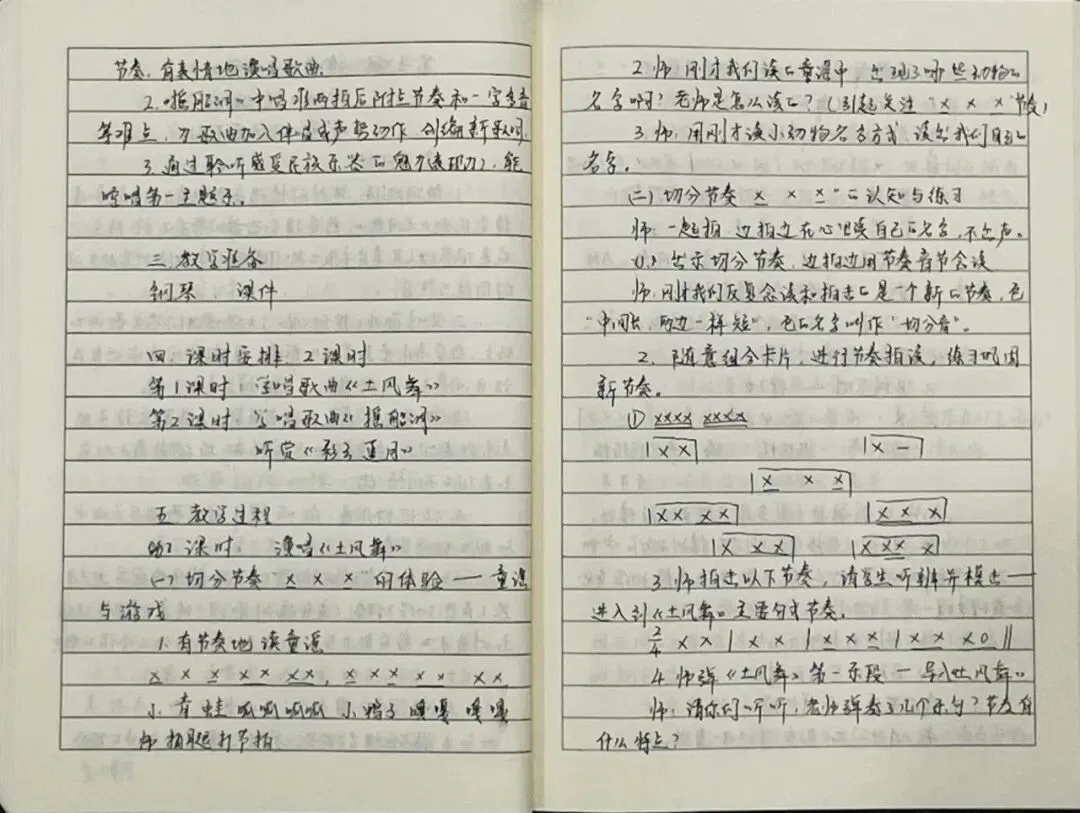 节奏,有表情地演唱歌曲。
2.《摇船调》中唱准两拍后附点节奏和一字多音
等难点,为歌曲加入伴唱或声势动作,创编新歌词。
3.通过聆听感受民族乐器的魅力(表现力),能
哼唱第一主题乐。
三、教学准备
钢琴、课件
四、课时安排 2课时
第1课时 学唱歌曲《土风舞》
第2课时 学唱歌曲《摇船调》
听赏《彩云追月》
五、教学过程
第1课时: 演唱《土风舞》
(一)切分节奏“X X X”的体验——童谣
与游戏
1.有节奏地读童谣
X X X X X X X, X X X X X X X X,
小 青 蛙 呱呱 呱呱 小 鸭子 嘎嘎 嘎嘎
师拍腿打节拍
2.师:刚才我们读的童谣中,出现了哪些动物的
名字啊?老师是怎么读的?(引起关注“X X X”节奏)
3.师:用刚才读小动物名字方式,读出我们自己的
名字。
(二)切分节奏“X X X”的认知与练习
师:一起拍,边拍边在心里读自己的名字,不出声。
(1.)出示切分节奏,边拍边用节奏音节念读
师:刚才我们反复念读和拍击的是一个新的节奏,它
“中间长,两边一样短”,它的名字叫作“切分音”。
2.随意组合卡片,进行节奏拍读,练习巩固
新节奏。
① XXXX XXXX
|X X| |X -|
|X X X|
|XX XX| |XX X|
|X XX| |X XX X|
3.师拍击以下节奏,请学生听辨并模击——
进入到《土风舞》主要句式节奏。
2/4 X X |X X |X X X |X X X 0 ||
4.师弹《土风舞》第一乐段——导入《土风舞》
师:请你们听听,老师弹奏了几个乐句?节奏有
什么特点?